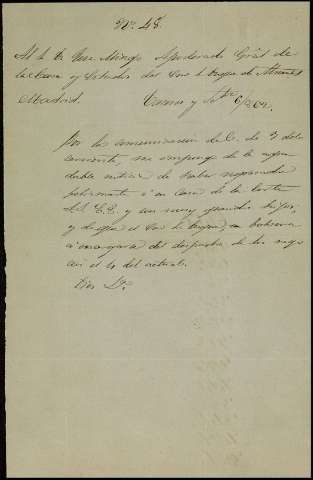 Nº. 48.
Al S. D. Jose Miingo Apoderado Gral de
la Casa y Estados del Sor. Duque de
Madrid. y 6/862.
Por la comunicacion de V. de 3 del
corriente, me impongo de la agra
dable noticia de haber regresado
felizmente á su Casa de la Corte
S.S. E.E. y con muy
y de que el Sor. Duque, se
á encargarse del despacho de los nego
cios el 1º del actual.
Dios &ª.